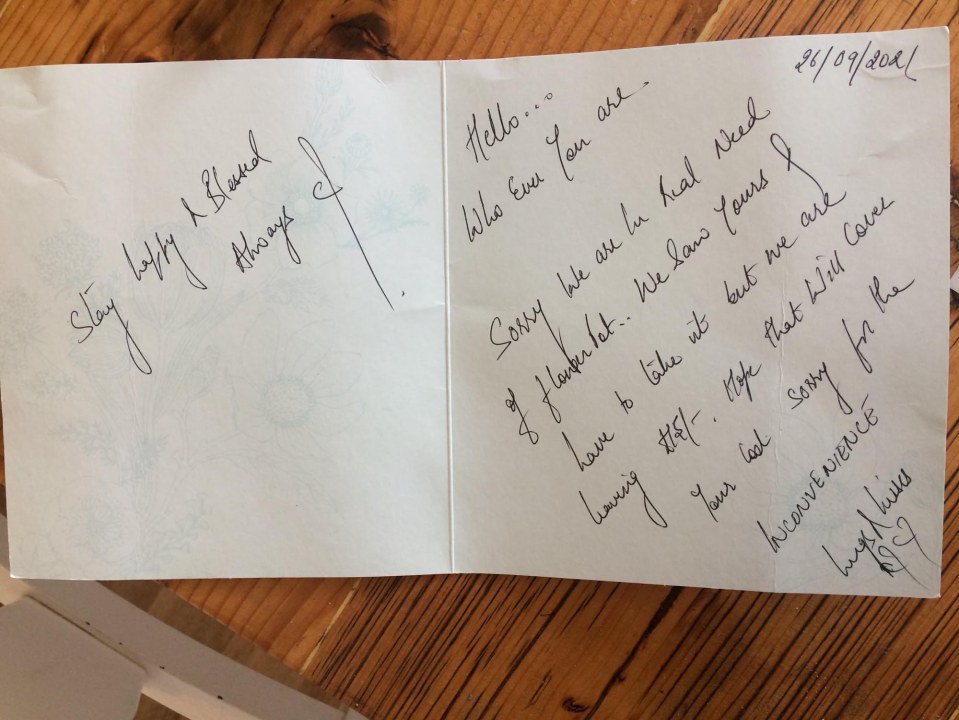 Stay happy & Blessed
Always
26/09/2021
Hello...
Who Ever You are.
Sorry We are In Real Need
of flower Pot.. We Saw Yours &
have to take it but we are
leaving Hope that Will Cover
Your Cost Sorry for the
INCONVENIENCE
hugs & kisses